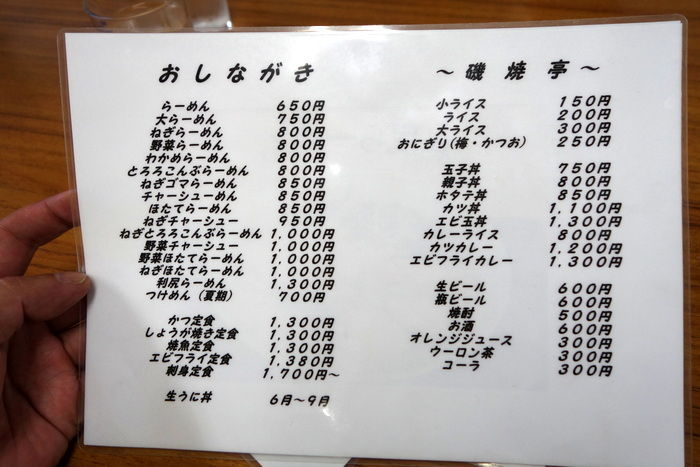 おしながき
らーめん 650円
大らーめん 750円
ねぎらーめん 800円
野菜らーめん 800円
わかめらーめん 800円
とろろこんぶらーめん 800円
ねぎゴマらーめん 850円
チャーシューめん 850円
ほたてらーめん 850円
ねぎチャーシュー 950円
ねぎとろろこんぶらーめん 1,000円
野菜チャーシュー 1,000円
野菜ほたてらーめん 1,000円
ねぎほたてらーめん 1,000円
利尻らーめん 1,300円
つけめん（夏期） 700円
かつ定食 1,300円
しょうが焼き定食 1,300円
焼魚定食 1,300円
エビフライ定食 1,380円
刺身定食 1,700円～
生うに丼 6月～9月
～磯焼亭～
小ライス 150円
ライス 200円
大ライス 300円
おにぎり(梅・かつお) 250円
玉子丼 750円
親子丼 800円
ホタテ丼 850円
カツ丼 1,100円
エビ玉丼 1,300円
カレーライス 800円
カツカレー 1,200円
エビフライカレー 1,300円
生ビール 600円
瓶ビール 600円
焼酎 500円
お酒 600円
オレンジジュース 300円
ウーロン茶 300円
コーラ 300円